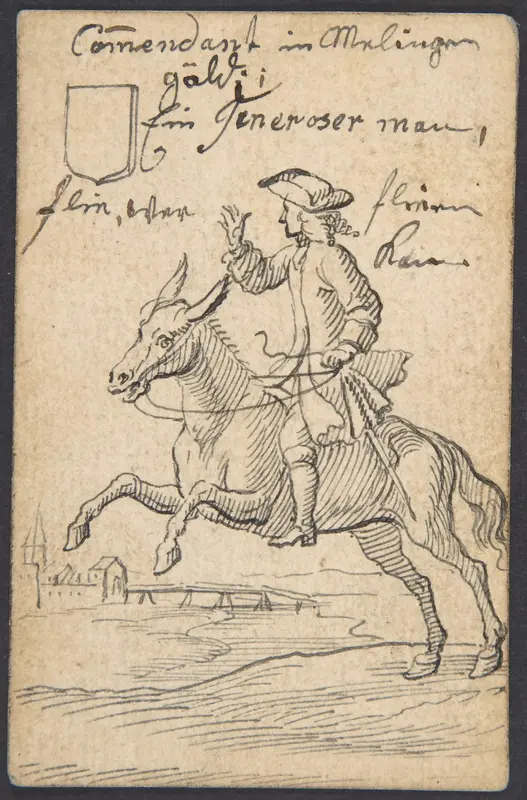 Com̄endant in Melingen
gäldi:
Ein Generoser man,
flie, wer flien
kan